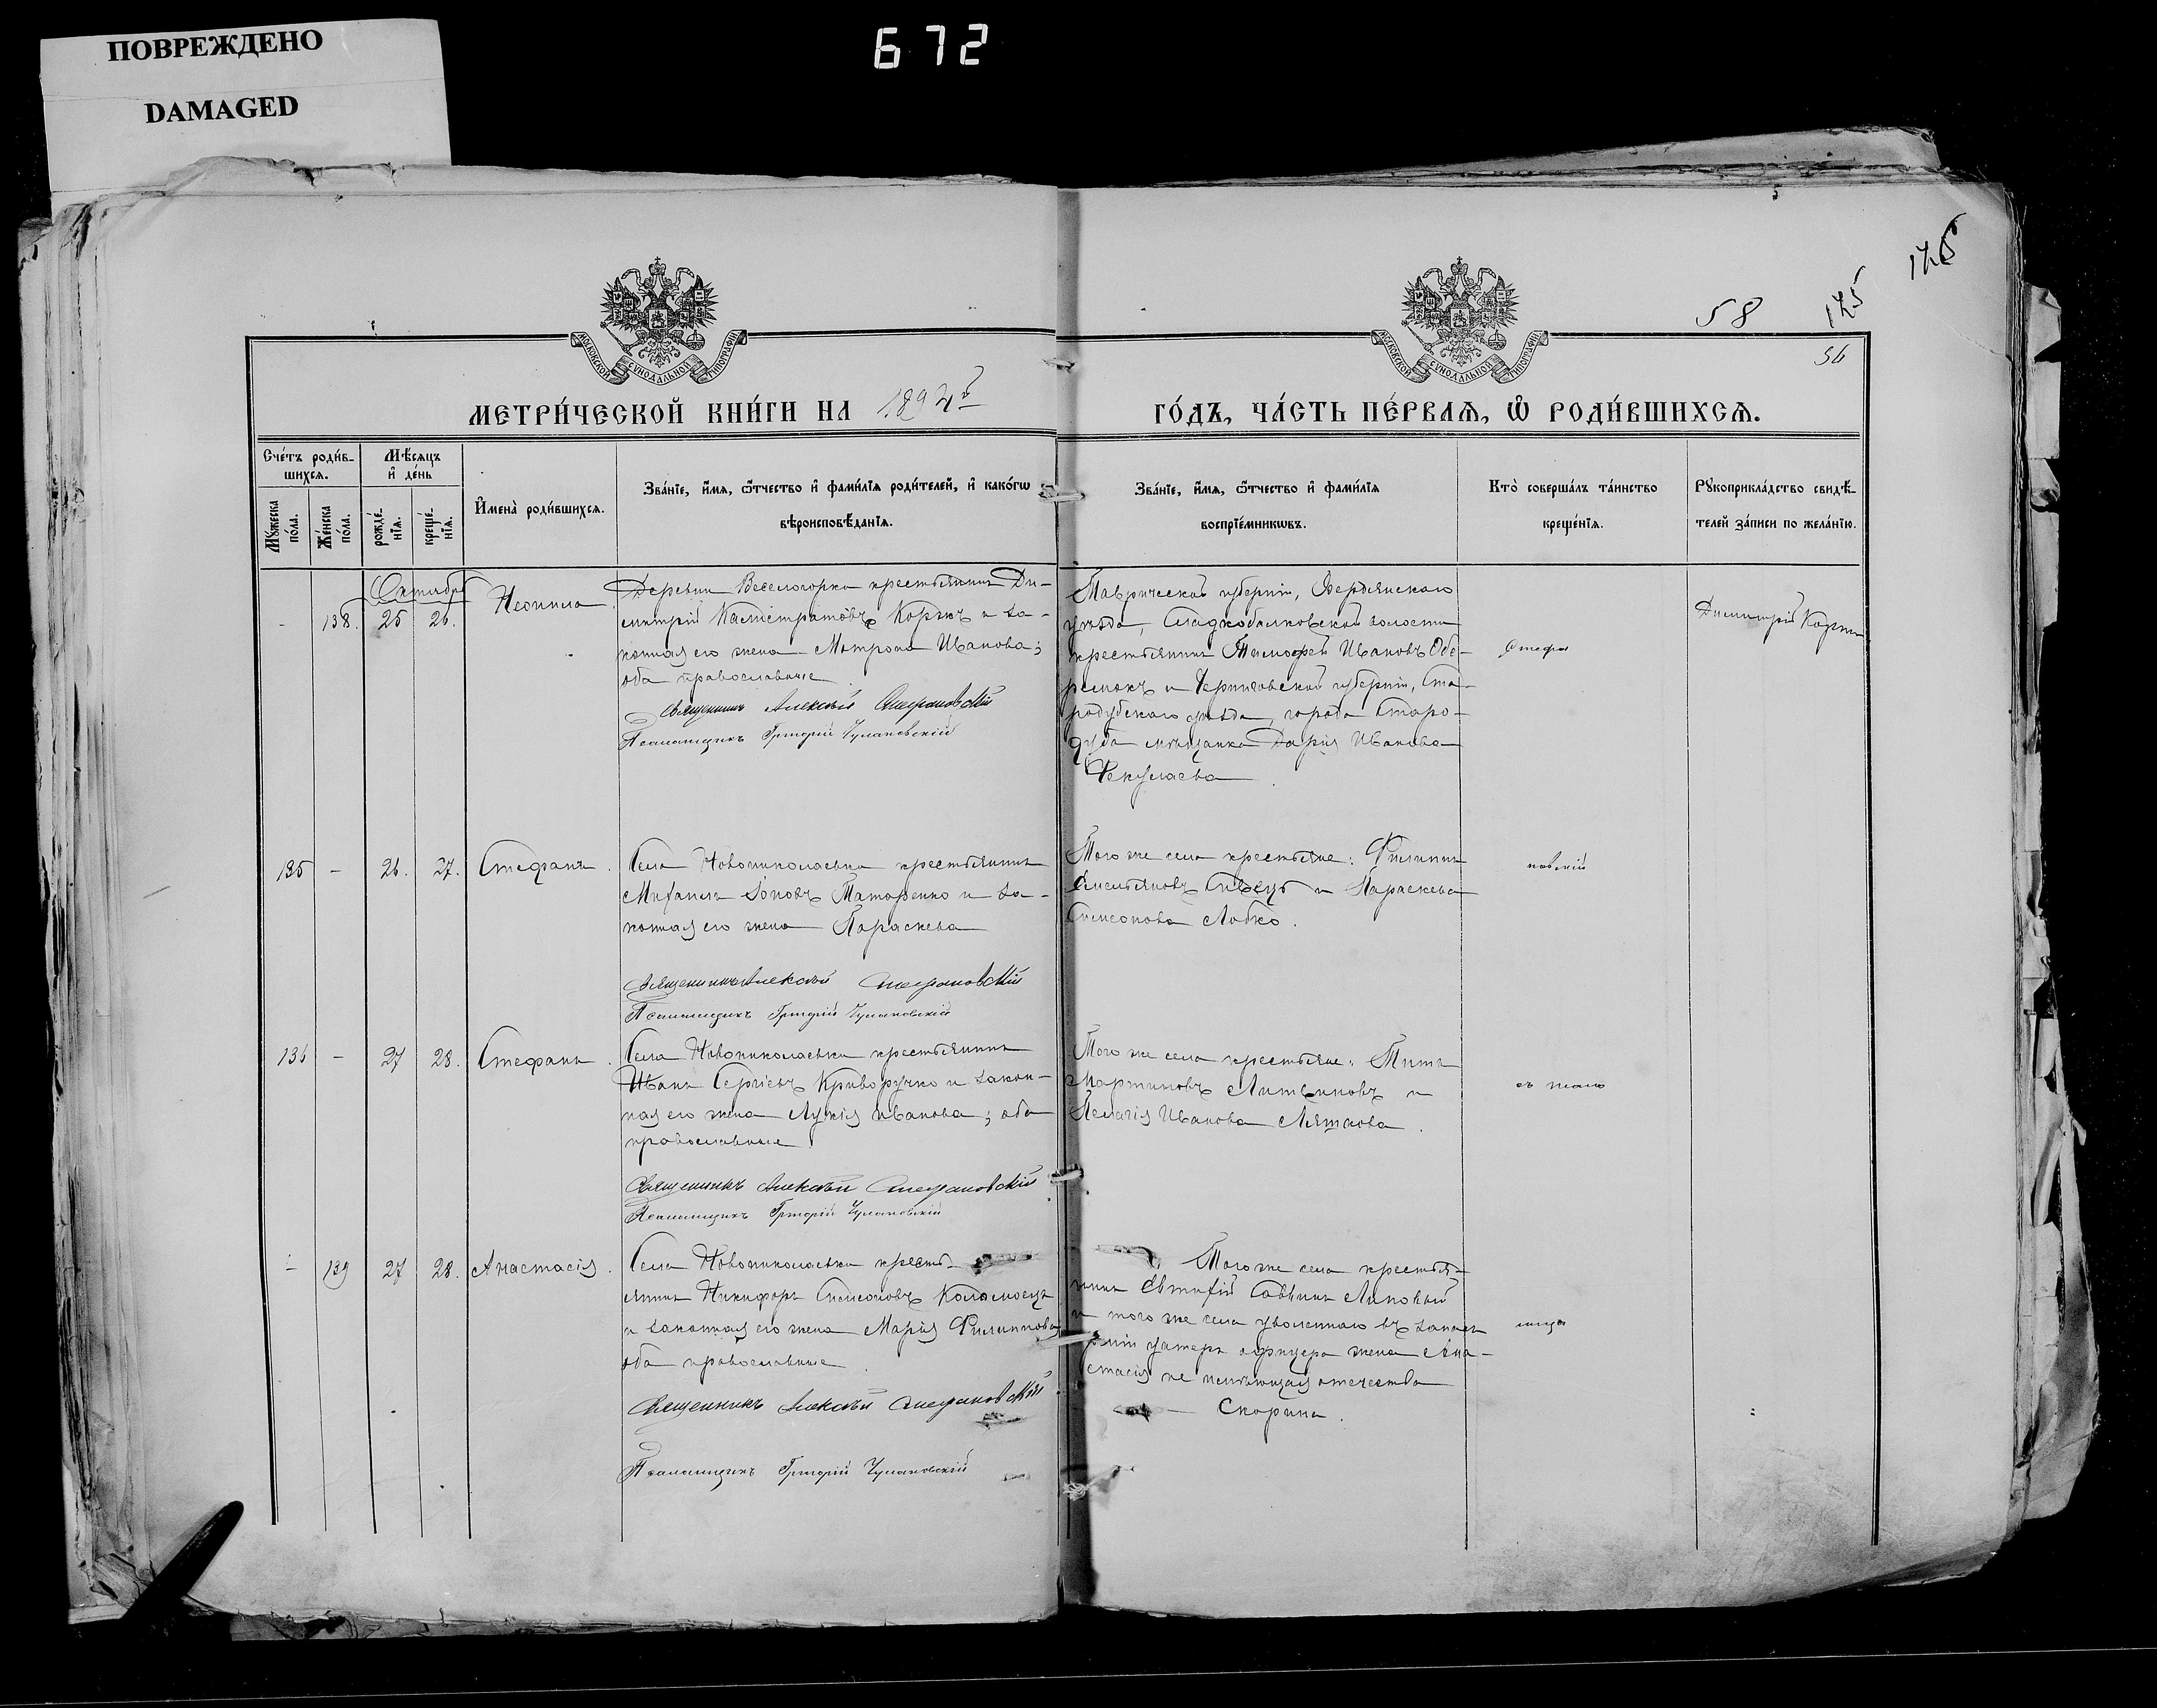 ПОВРЕЖДЕНО
DAMAGED
672
58
125
56
МОСКОВСКОЙ СѴНОДАЛЬНОЙ ТИПОГРАФІИ
МОСКОВСКОЙ СѴНОДАЛЬНОЙ ТИПОГРАФІИ
МЕТРИ́ЧЕСКОЙ КНИ́ГИ НА 1894й
ГО́ДЪ, ЧА́СТЬ ПЕ́РВАѦ, Ѡ҆ РОДИ́ВШИХСѦ.
Сче́тъ роди́в-
шихсѧ.
Мꙋ́жеска по́ла.
Же́нска по́ла.
Мѣ́сѧцъ
и҆ де́нь
рожде́-
нїѧ.
креще́-
нїѧ.
И҆мена̀ роди́вшихсѧ.
Зва́нїе, и҆́мѧ, ѻ҆́тчество и҆ фами́лїѧ роди́телей, и҆ како́гѡ
вѣроисповѣ́данїѧ.
Зва́нїе, и҆́мѧ, ѻ҆́тчество и҆ фами́лїѧ
воспрїе́мникѡвъ.
Кто̀ соверша́лъ та́инство
креще́нїѧ.
Рꙋкоприкла́дство свидѣ́-
телей за́писи по жела́нїю.
Октябрь
- 138. 25 26. Неонила.
Деревни Веселогорки крестьянинъ Ди-
митрій Калистратовъ Коржъ и за-
конная его жена Матрона Иванова;
оба православные
Священникъ Алексѣй Стефановскій
Псаломщикъ Григорій Чулановскій
Таврической губерніи, Бердянскаго
уѣзда, Сладкобалковской волости
крестьянинъ Тимофей Ивановъ Обе-
ремокъ и Черниговской губерніи, Ста-
родубскаго уѣзда, города Старо-
дуба мѣщанка Дарія Иванова
Чекулаева
Стефа
Димитрій Коржъ
135 - 26. 27. Стефанъ.
Села Новониколаевки крестьянинъ
Михаилъ Іоновъ Татаренко и за-
конная его жена Параскева
Священникъ Алексѣй Стефановскій
Псаломщикъ Григорій Чулановскій
Того же села крестьяне: Филиппъ
Емельяновъ Швецъ и Параскева
Симеонова Лобко.
новскій
136 - 27 28. Стефанъ.
Села Новониколаевки крестьянинъ
Иванъ Сергіевъ Криворучко и закон-
ная его жена Лукія Иванова; оба
православные
Священникъ Алексѣй Стефановскій
Псаломщикъ Григорій Чулановскій
Того же села крестьяне: Титъ
Мартиновъ Литвиновъ и
Пелагія Иванова Ляшкова.
съ псало
- 139 27 28. Анастасія.
Села Новониколаевки кресть-
янинъ Никифоръ Симеоновъ Коломоецъ
и законная его жена Марія Филиппова
оба православные
Священникъ Алексѣй Стефановскій
Псаломщикъ Григорій Чулановскій
Того же села крестья-
нинъ Евтихій Саввинъ Липовый
и того же села уволеннаго въ запасъ
арміи унтеръ офицера жена Ана-
стасія не имѣющая отечества
Скорина.
мщи